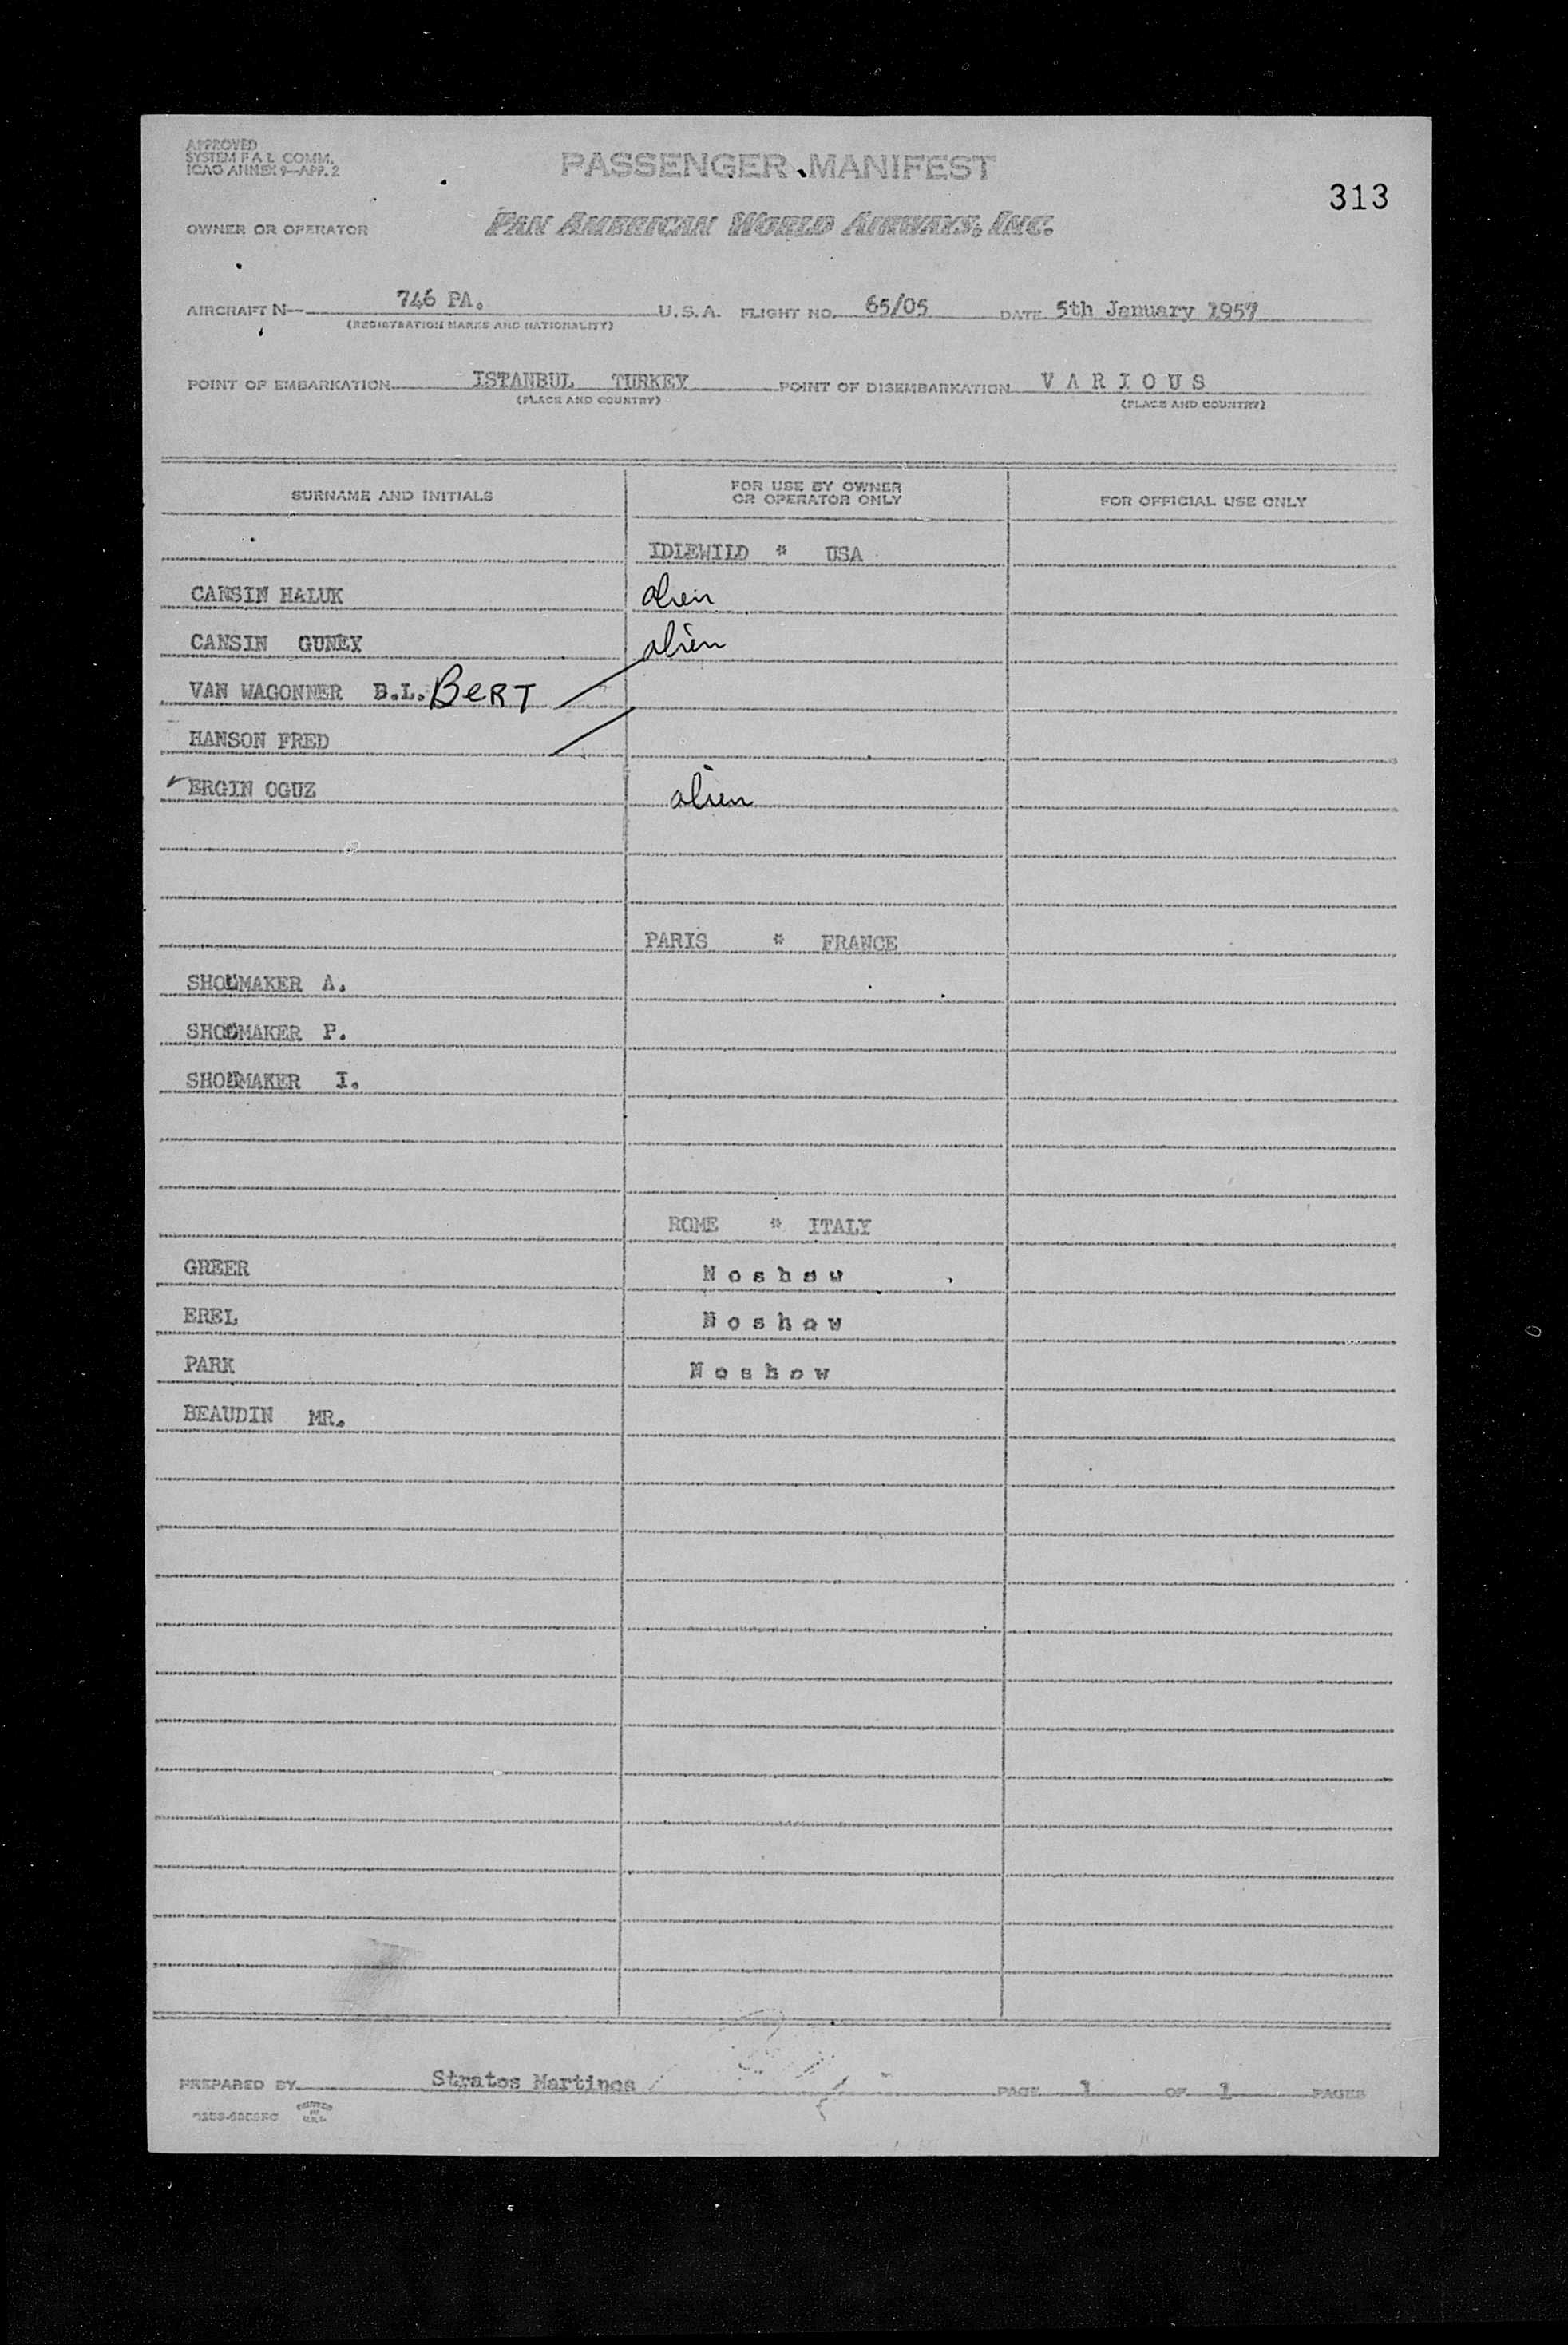 APPROVED
SYSTEM F A L COMM.
ICAO ANNEX 9—APP. 2
PASSENGER MANIFEST
313
OWNER OR OPERATOR PAN AMERICAN WORLD AIRWAYS, INC.
AIRCRAFT N— 746 PA. U.S.A. FLIGHT NO. 65/05 DATE 5th January 1957
(REGISTRATION MARKS AND NATIONALITY)
POINT OF EMBARKATION ISTANBUL TURKEY POINT OF DISEMBARKATION VARIOUS
(PLACE AND COUNTRY) (PLACE AND COUNTRY)
SURNAME AND INITIALS FOR USE BY OWNER OR OPERATOR ONLY FOR OFFICIAL USE ONLY
IDLEWILD * USA
CANSIN HALUK alien
CANSIN GUNEY alien
VAN WAGONNER B.L. BERT
HANSON FRED
ERGIN OGUZ alien
PARIS * FRANCE
SHOEMAKER A.
SHOEMAKER P.
SHOEMAKER I.
ROME * ITALY
GREER Noshow
EREL Noshow
PARK Noshow
BEAUDIN MR.
PREPARED BY Stratos Martinos PAGE 1 OF 1 PAGES
PRINTED
IN
U.S.A.